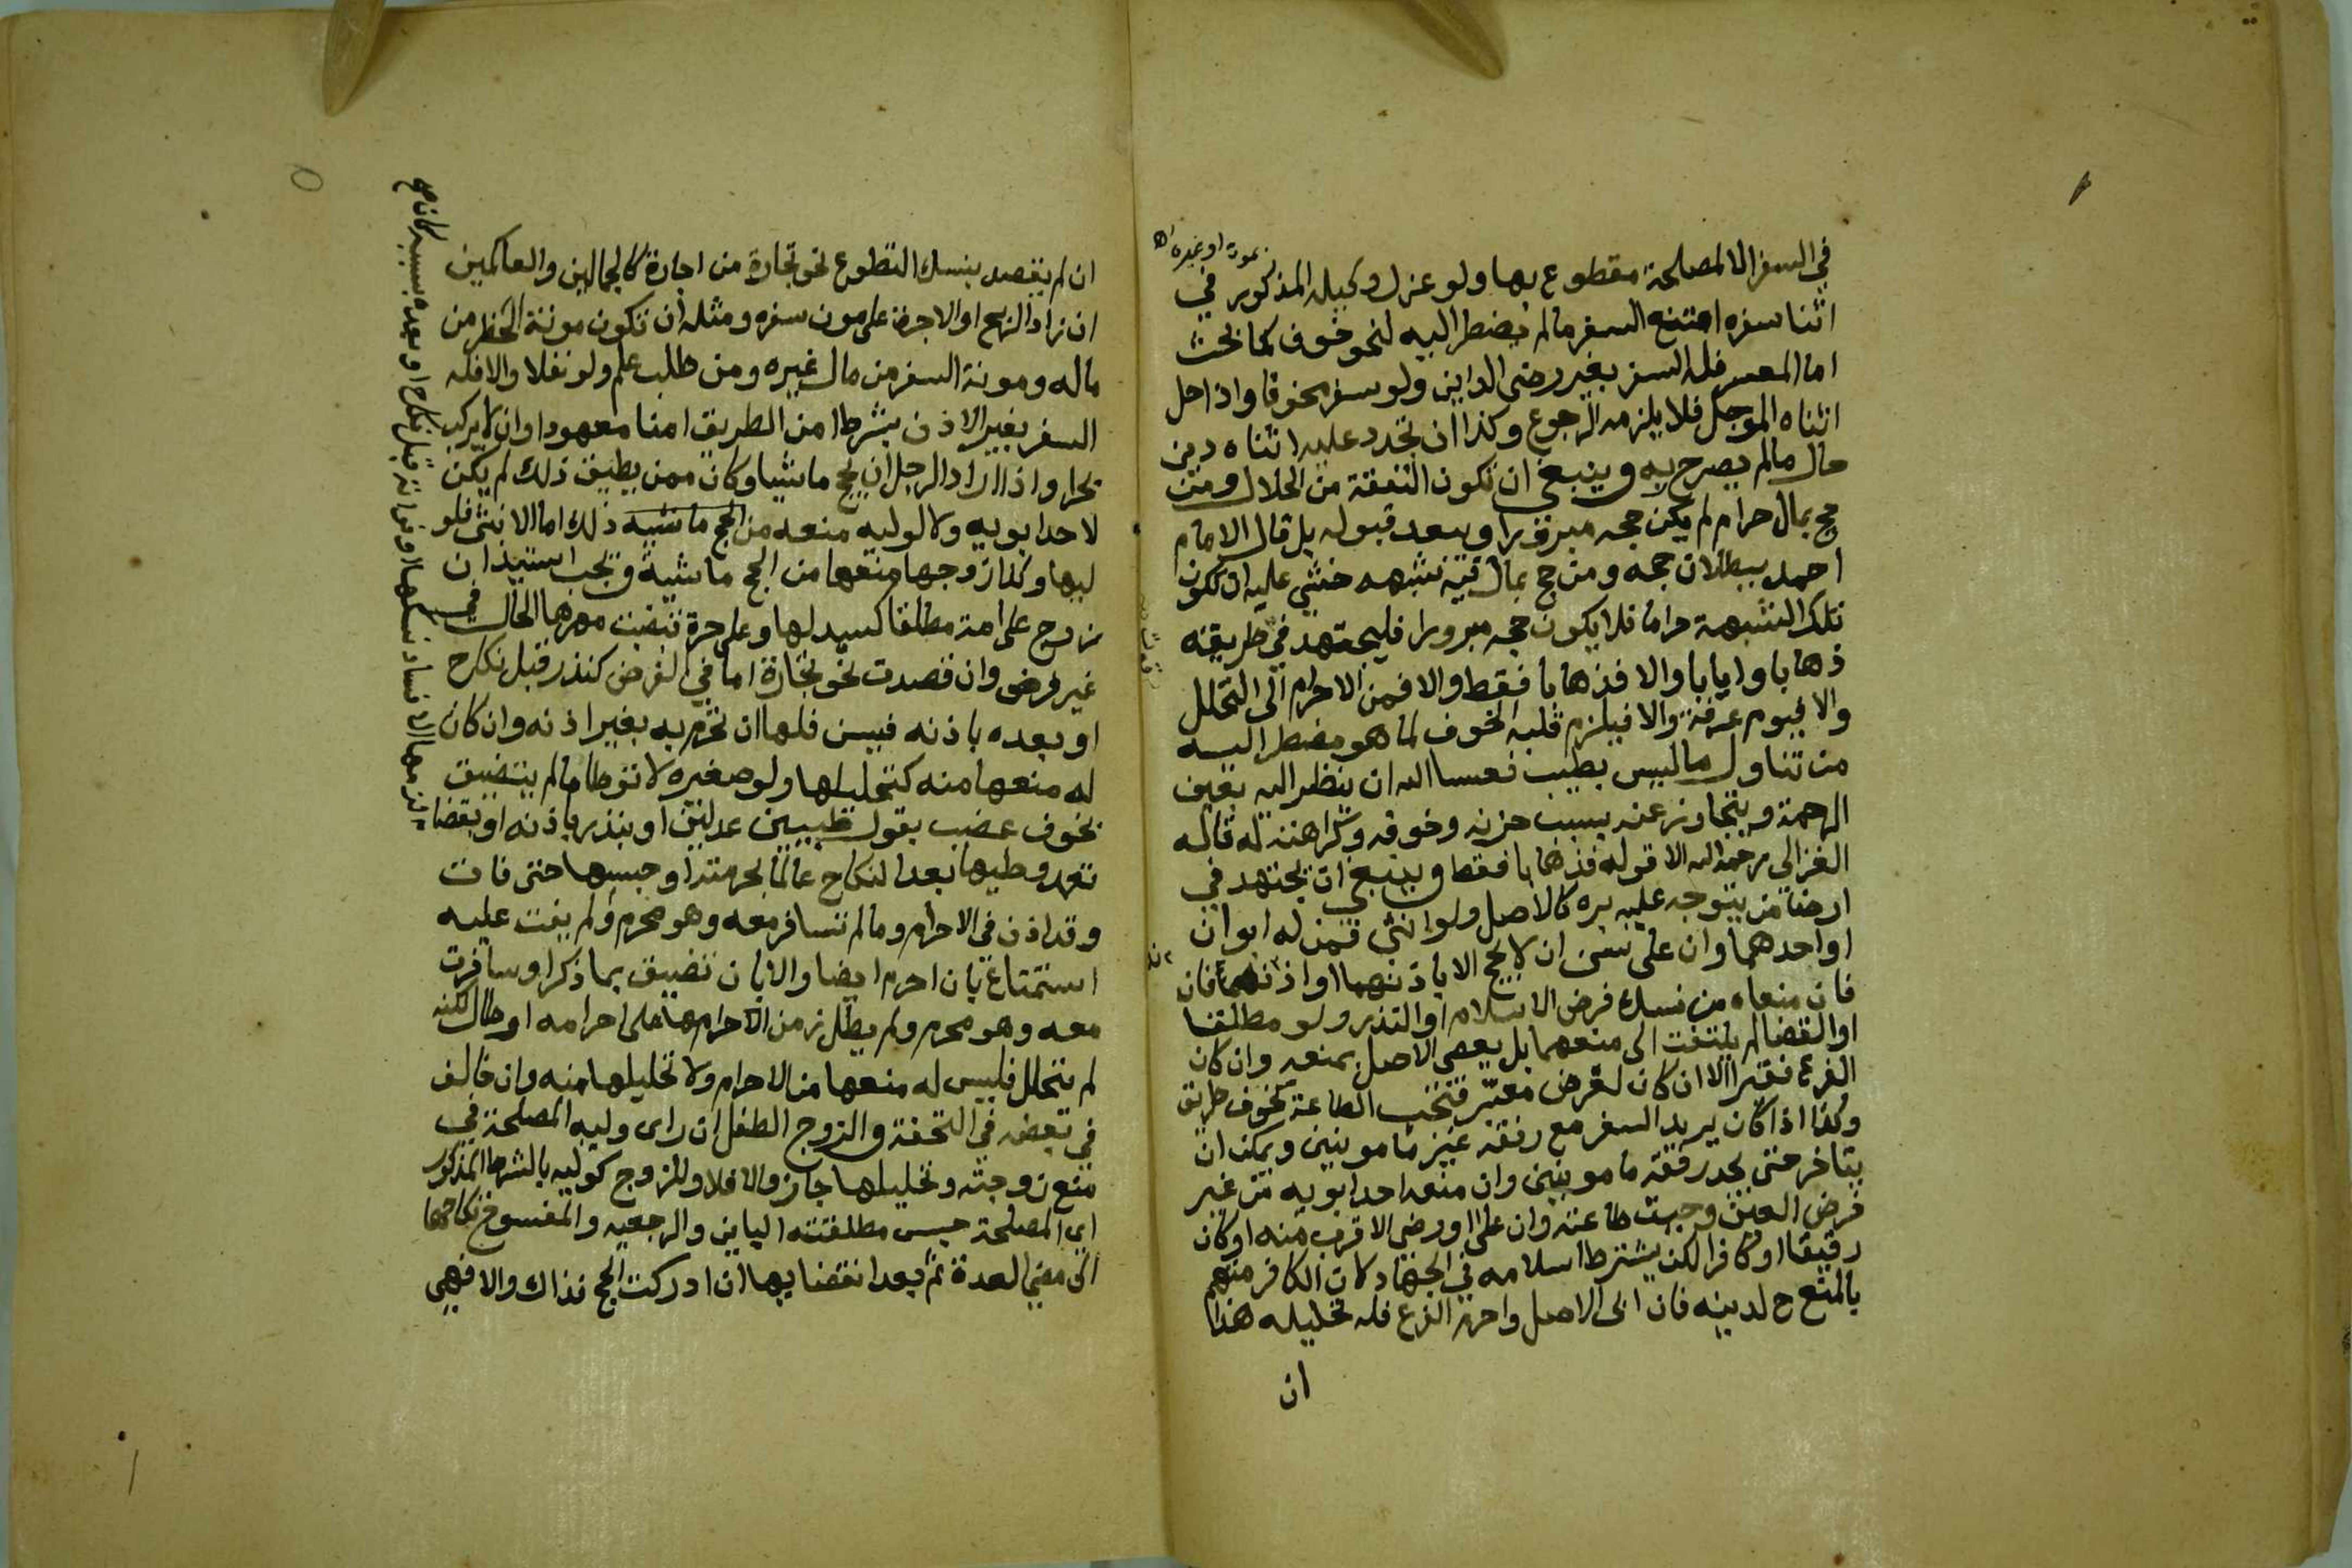 في السفر الا لمصلحة مقطوع بها ولو عزل وكيله المذكور في
بموت او غيره اه
اثنا سفره امتنع السفر ما لم يضطر اليه لنحو خوف كما بحث
اما المعسر فله السفر بغير رضى الداين ولو سفر مخوفا واذا حل
اثناه الموجل فلا يلزمه الرجوع وكذا ان تجدد عليه اثناه دين
حال ما لم يصرح به وينبغي ان تكون النفقة من الحلال ومن
حج بمال حرام لم يكن حجه مبرورا وبعد قبوله بل قال الامام
احمد ببطلان حجه ومن حج بمال فيه شبهه خشي عليه ان تكون
تلك الشبهة حراما فلا يكون حجه مبرورا فليجتهد في طريقه
ذهابا وايابا والا فذهابا فقط والا فمن الاحرام الى التحلل
والا فيوم عرفة والا فيلزم قلبه الخوف لما هو مضطر اليه
من تناول ما ليس بطيب فعسا الله ان ينظر اليه بعين
الرحمة ويتجاوز عنه بسبب حزنه وخوفه وكراهته له قاله
الغزالي رحمه الله الا قوله فذهابا فقط وينبغي ان يجتهد في
ارضا من يتوجه عليه بره كالاصل ولو انثى فمن له ابوان
او احدهما وان على سن ان لا يحج الا باذنهما او اذنه فان
فان منعاه من نسك فرض الاسلام او النذر ولو مطلقا
او القضا لم يلتفت الى منعهما بل يعصي الاصل بمنعه وان كان
الفرع فقيرا الا ان كان لغرض معتبر فتجب الطاعة كخوف طريق
وكذا اذا كان يريد السفر مع رفقة غير مامونين ويمكنه ان
يتاخر حتى يجد رفقة مامونين وان منعه احد ابويه من غير
فرض العين وجبت طاعته وان على او رضي الاقرب منه او كان
رقيقا او كافرا لكن يشترط اسلامه في الجهاد لان الكافر متهم
بالمنع ح لدينه فان ابى الاصل واحرم الفرع فله تحليله هذا
ان
ان لم يقصد بنسك التطوع نحو تجارة من اجارة كالجمالين والعاكمين
ان زاد الربح او الاجرة على مون سفره ومثله ان تكون مونة الحضر من
ماله ومونة السفر من مال غيره ومن طلب علم ولو نفلا والا فله
السفر بغير الاذن بشرط امن الطريق امنا معهودا وان لا يركب
بحرا واذا اراد الرجل ان يحج ماشيا وكان ممن يطيق ذلك لم يكن
لاحد ابويه ولا لوليه منعه من الحج ماشيه ذلك اما الانثى فلو
ليها وكذا زوجها منعها من الحج ماشية ويجب استيذان
زوج على امة مطلقا كسيد لها وعلى حرة قبضت مهرها الحال في
غير فرض وان قصدت نحو تجارة اما في الفرض كنذر قبل نكاح
او بعده باذنه فيسن فلها ان تحرم به بغير اذنه وان كان
له منعها منه كتحليلها ولو صغيره لا توطا ما لم يتضيق
بخوف عضب بقول طبيبين عدلين او بنذر باذنه او بقضا
تعمد وطيها بعد النكاح عالما بحرمته او حبسها حتى فات
وقد اذن في الاحرام وما لم تسافر معه وهو محرم ولم يفت عليه
استمتاع بان احرم ايضا والا بان تضيق بما ذكر او سافرت
معه وهو محرم ولم يطل زمن الاحرامها على احرامه او طال لكنه
لم يتحلل فليس له منعها من الاحرام ولا تحليلها منه وان خالف
في بعضه في التحفة والزوج الطفل ان راى وليه المصلحة في
منع زوجته وتحليلها جاز والا فلا وللزوج كوليه بالشرط المذكور
اي المصلحة حبس مطلقته الباين والرجعيه والمفسوخ نكاحها
الى مضي العدة ثم بعد انقضايها ان ادركت الحج فذاك والا فهي